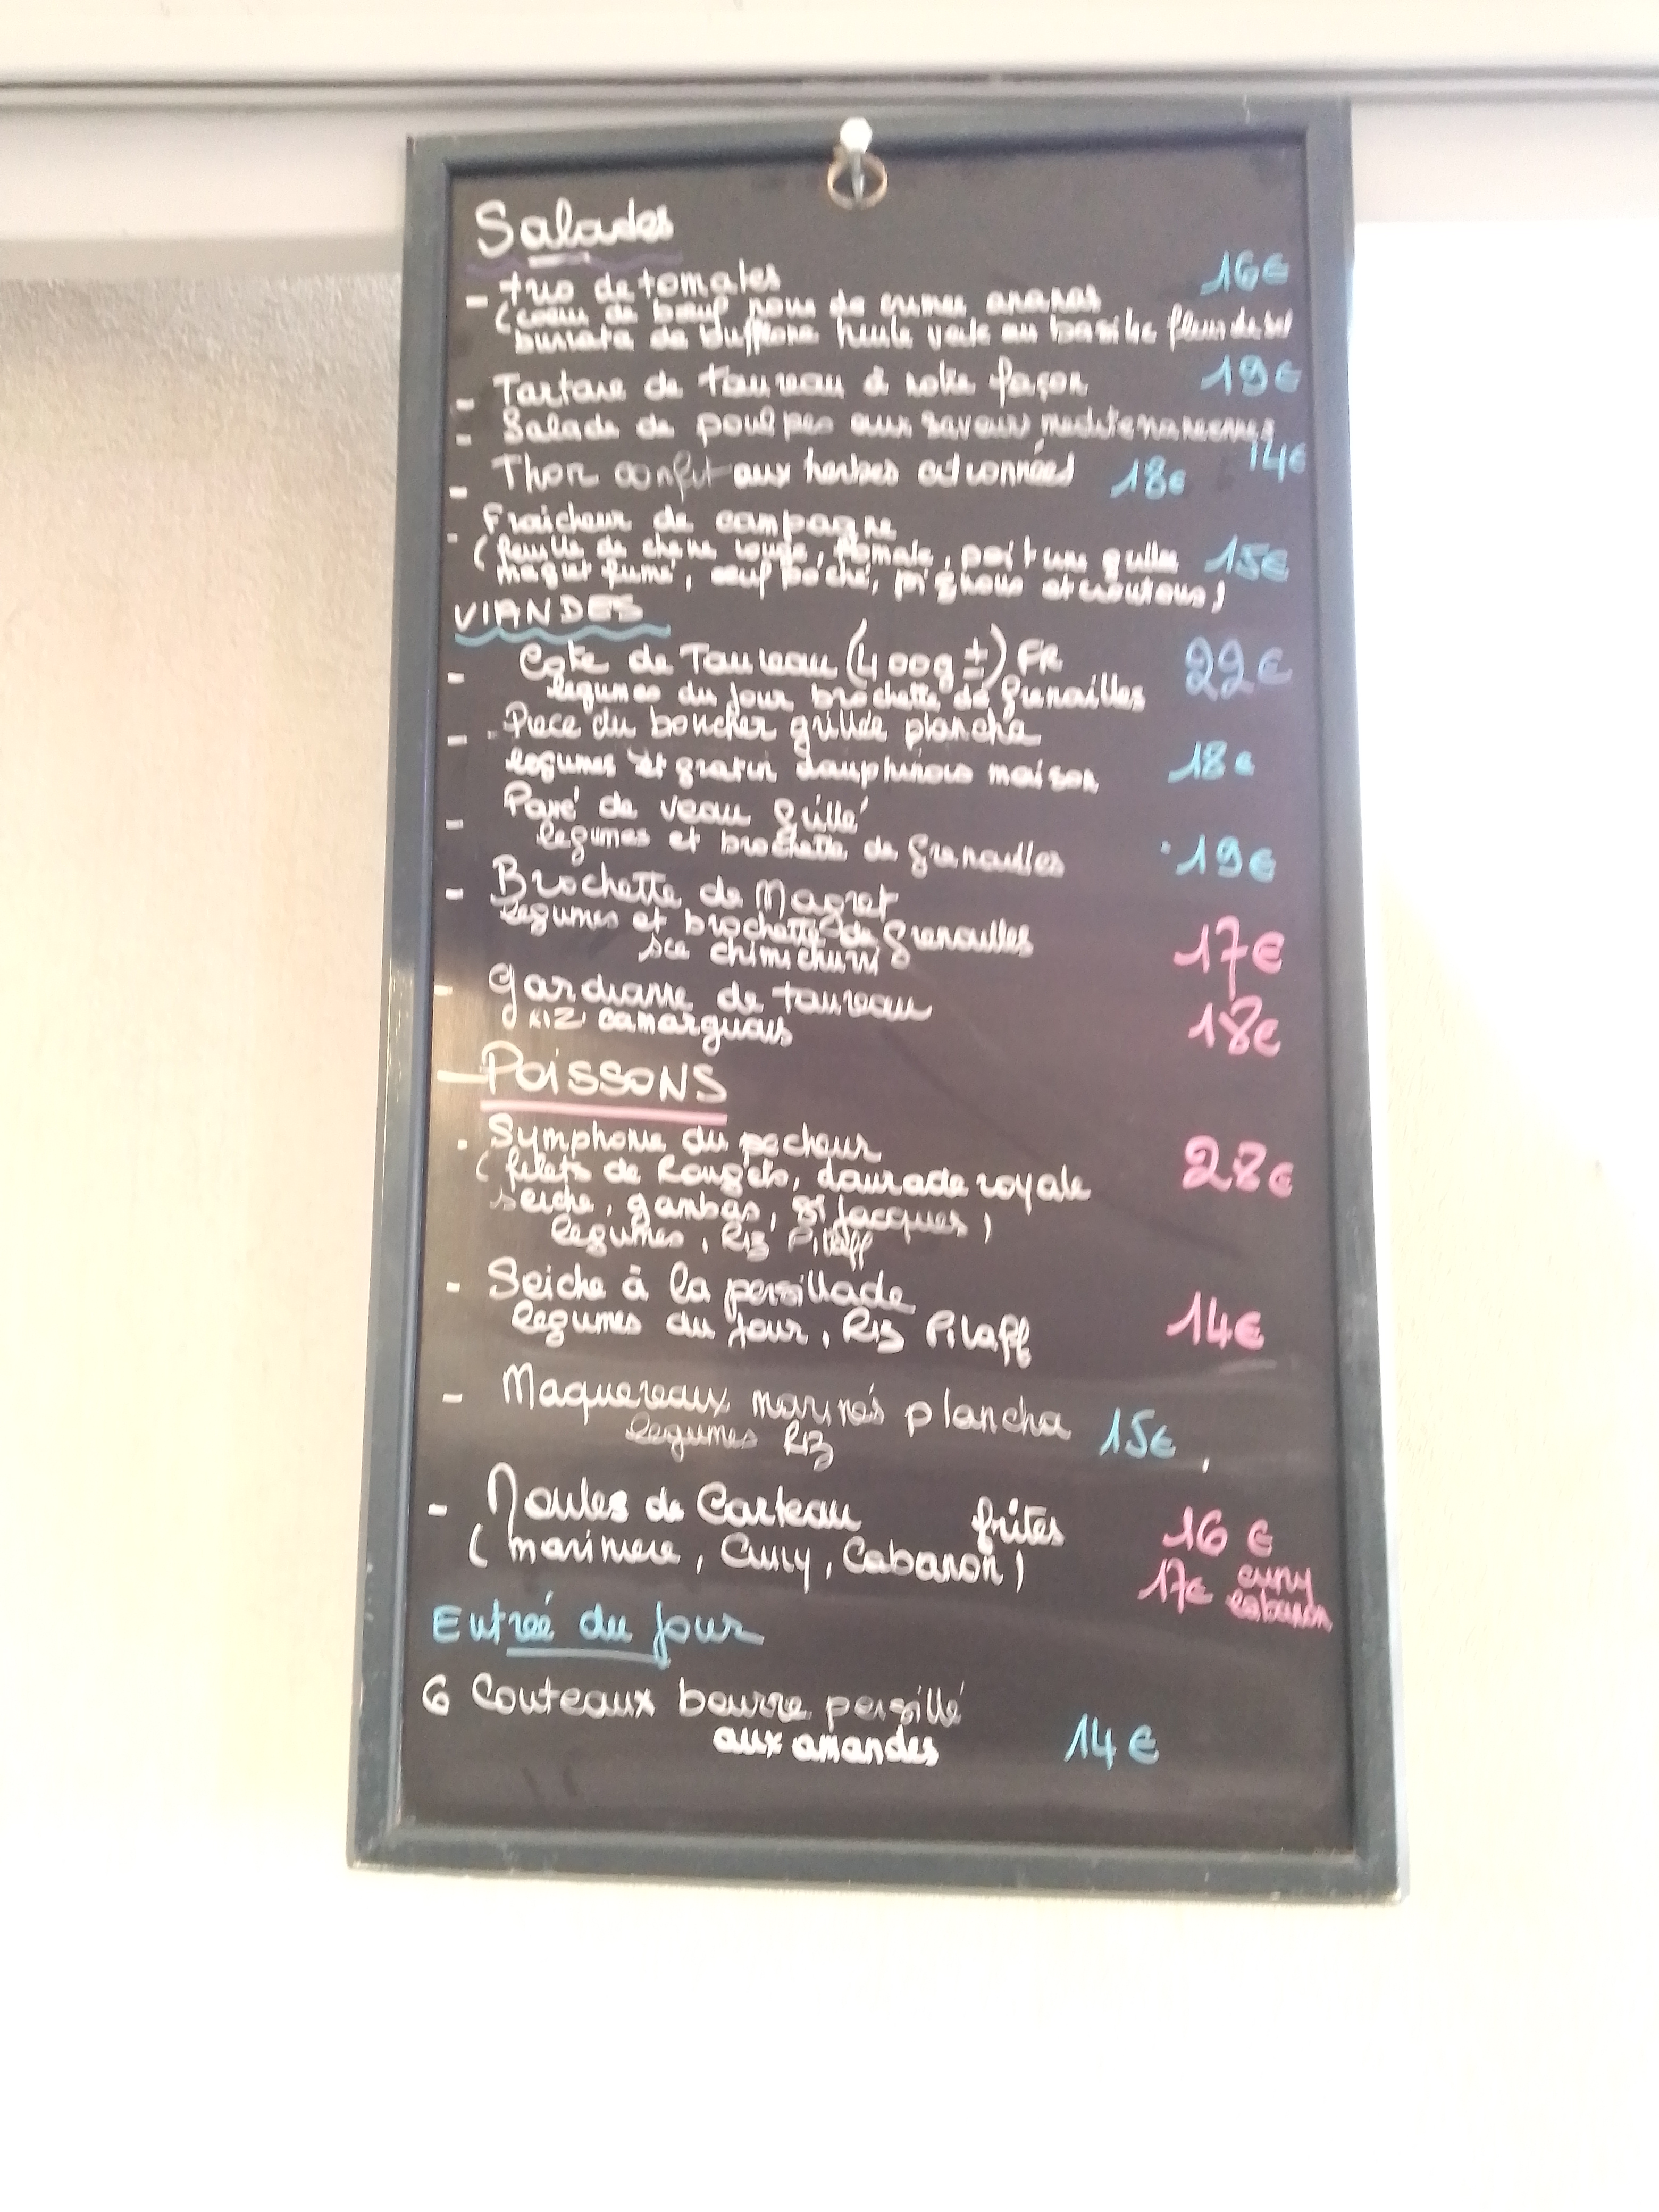 Salades
- trio de tomates 16€
(coeur de boeuf noire de crimee ananas
burrata de bufflone huile verte au basilic fleur de sel
- Tartare de taureau à notre façon 19€
- Salade de poulpes aux saveurs mediterraneennes
14€
- Thon confit aux herbes citronnées 18€
- Fraicheur de campagne
(feuille de chene rouge, tomate, poitrine grillee 15€
magret fumé, oeuf poché, pignons et croutons)
VIANDES
- Cote de Taureau (400g ±) FR 22€
legumes du jour brochette de Grenailles
- Piece du boucher grillée plancha
legumes et gratin dauphinois maison 18€
- Pavé de veau Grillé
legumes et brochette de Grenailles 19€
- Brochette de Magret
legumes et brochette de Grenailles 17€
sce chimichurri
- Gardianne de taureau
RIZ camarguais 18€
- POiSSONS
- Symphonie du pecheur 28€
(filets de Rougets, daurade royale
seiche, gambas, St Jacques)
legumes, Riz Pilaff
- Seiche à la persillade
legumes du jour, Riz Pilaff 14€
- Maquereaux marinés plancha 15€
legumes Riz
- Moules de Carteau frites 16€
(mariniere, Curry, Cabanon)
17€ curry
cabanon
Entreé du jour
6 Couteaux beurre persillé
aux amandes 14€